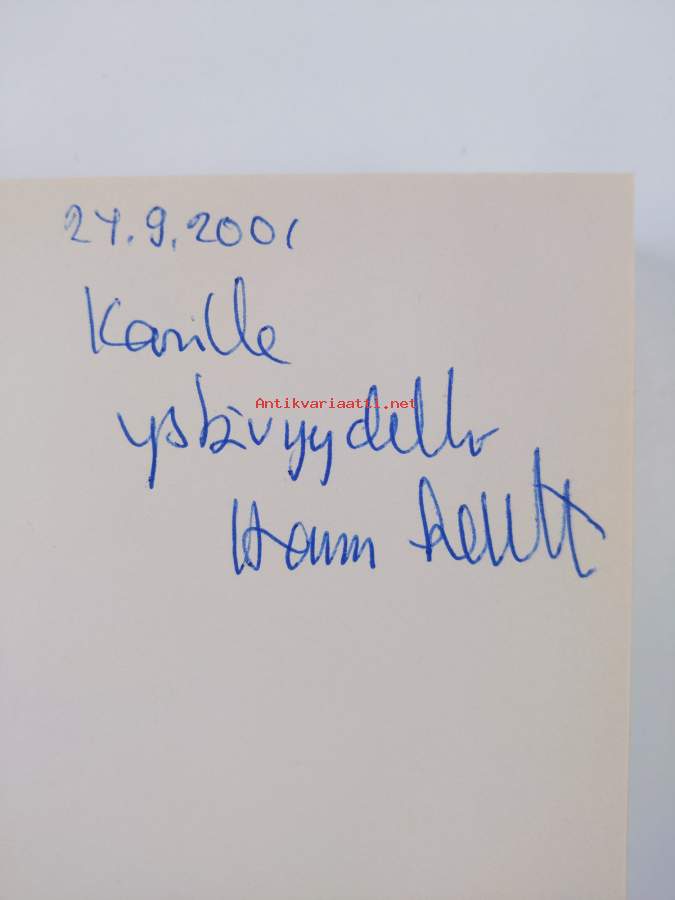 24.9.2001
Karille
Antikvariaatti.net
ystävyydellä
Hannu